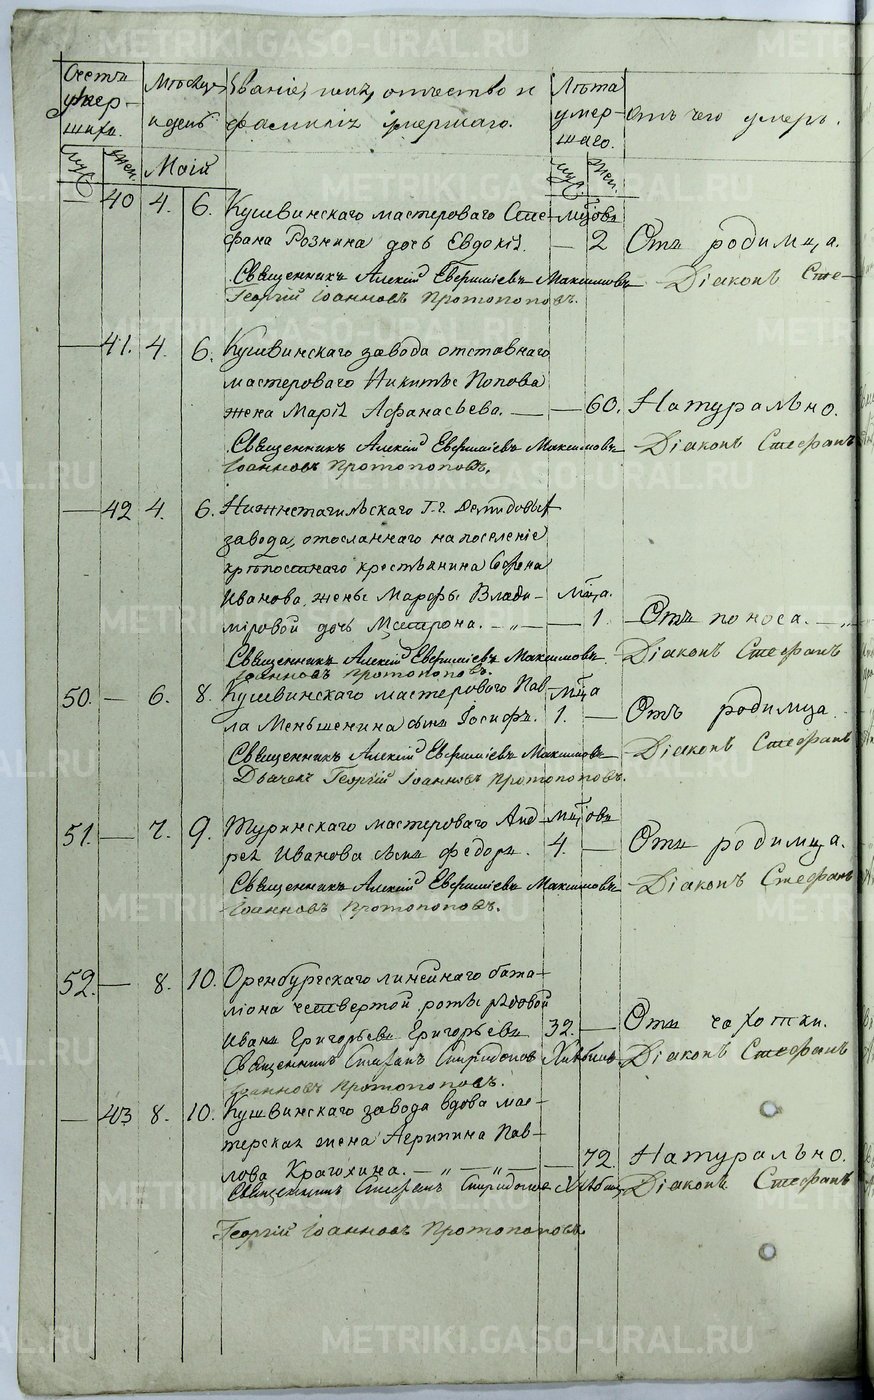 Счетъ умер-шихъ. Мѣсяцъ и день Званіе, имя, отчество и фамилія умершаго. Лѣта умер-шаго. Отъ чего умеръ.
муж. жен. Маій муж. жен.
— 40 4. 6. Кушвинскаго мастероваго Сте- мѣцовъ
фана Рознина дочь Евдокія. — 2 Отъ родимца.
Священникъ Алексій Евфиміевъ Максимовъ Діаконъ Сте-
Георгій Іоанновъ Протопоповъ.
— 41. 4. 6. Кушвинскаго завода отставнаго
мастероваго Никиты Попова
жена Марія Афанасьева. — — 60. Натурально.
Священникъ Алексій Евфиміевъ Максимовъ Діаконъ Стефанъ
Іоанновъ Протопоповъ.
— 42 4. 6. Нижнетагильскаго Г.г. Демидовыхъ
завода, отосланнаго на поселеніе
крѣпостнаго крестьянина
Иванова, жены Марфы Влади- мѣца.
міровой дочь Матрона. — „ — — 1. Отъ поноса. — „
Священникъ Алексій Евфиміевъ Максимовъ Діаконъ Стефанъ
Іоанновъ Протопоповъ.
50. — 6. 8. Кушвинскаго мастероваго Пав- мѣца
ла Меньшенина сынъ Іосифъ. 1. — Отъ родимца.
Священникъ Алексій Евфиміевъ Максимовъ Діаконъ Стефанъ
Дьячекъ Георгій Іоанновъ Протопоповъ.
51. — 7. 9. Туринскаго мастероваго Анд- мѣцовъ
рея Иванова сынъ Федоръ. 4. — Отъ родимца.
Священникъ Алексій Евфиміевъ Максимовъ Діаконъ Стефанъ
Іоанновъ Протопоповъ.
52. — 8. 10. Оренбургскаго линейнаго бата-
ліона четвертой роты рядовой
Иванъ Григорьевъ Григорьевъ 32. — Отъ чахотки.
Священникъ Стефанъ Спиридоновъ Хлѣбинъ Діаконъ Стефанъ
Іоанновъ Протопоповъ.
— 43 8. 10. Кушвинскаго завода вдова мас-
терская жена Агрипина Пав-
лова Крагохина. — „ — „ — — 72. Натурально.
Священникъ Стефанъ Спиридоновъ Діаконъ Стефанъ
Георгій Іоанновъ Протопоповъ.
METRIKI.GASO-URAL.RU